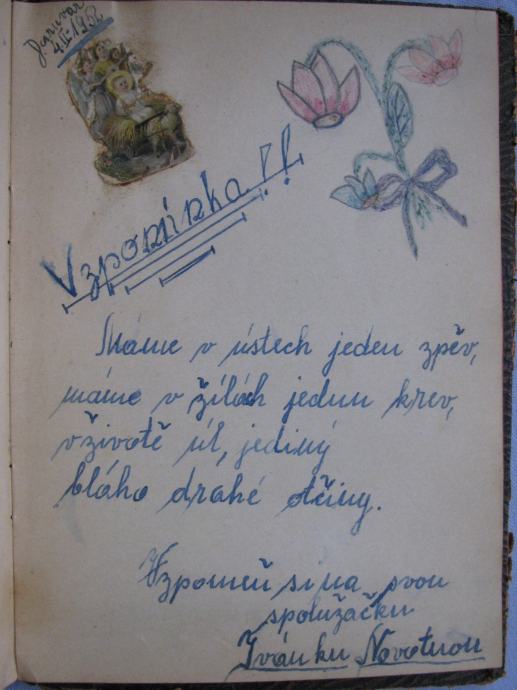 Daruvar
4.III.1952
Vzpomínka!!
Máme v ústech jeden zpěv,
máme v žílách jednu krev,
v životě úl, jediný
bláho drahé otčiny.
Vzpomeň si na svou
spolužačku
Ivánku Novotnou